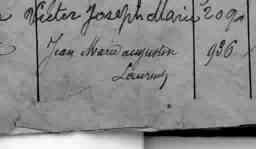 Victor Joseph Marie 209
Jean Marie augustin 936
Laurent